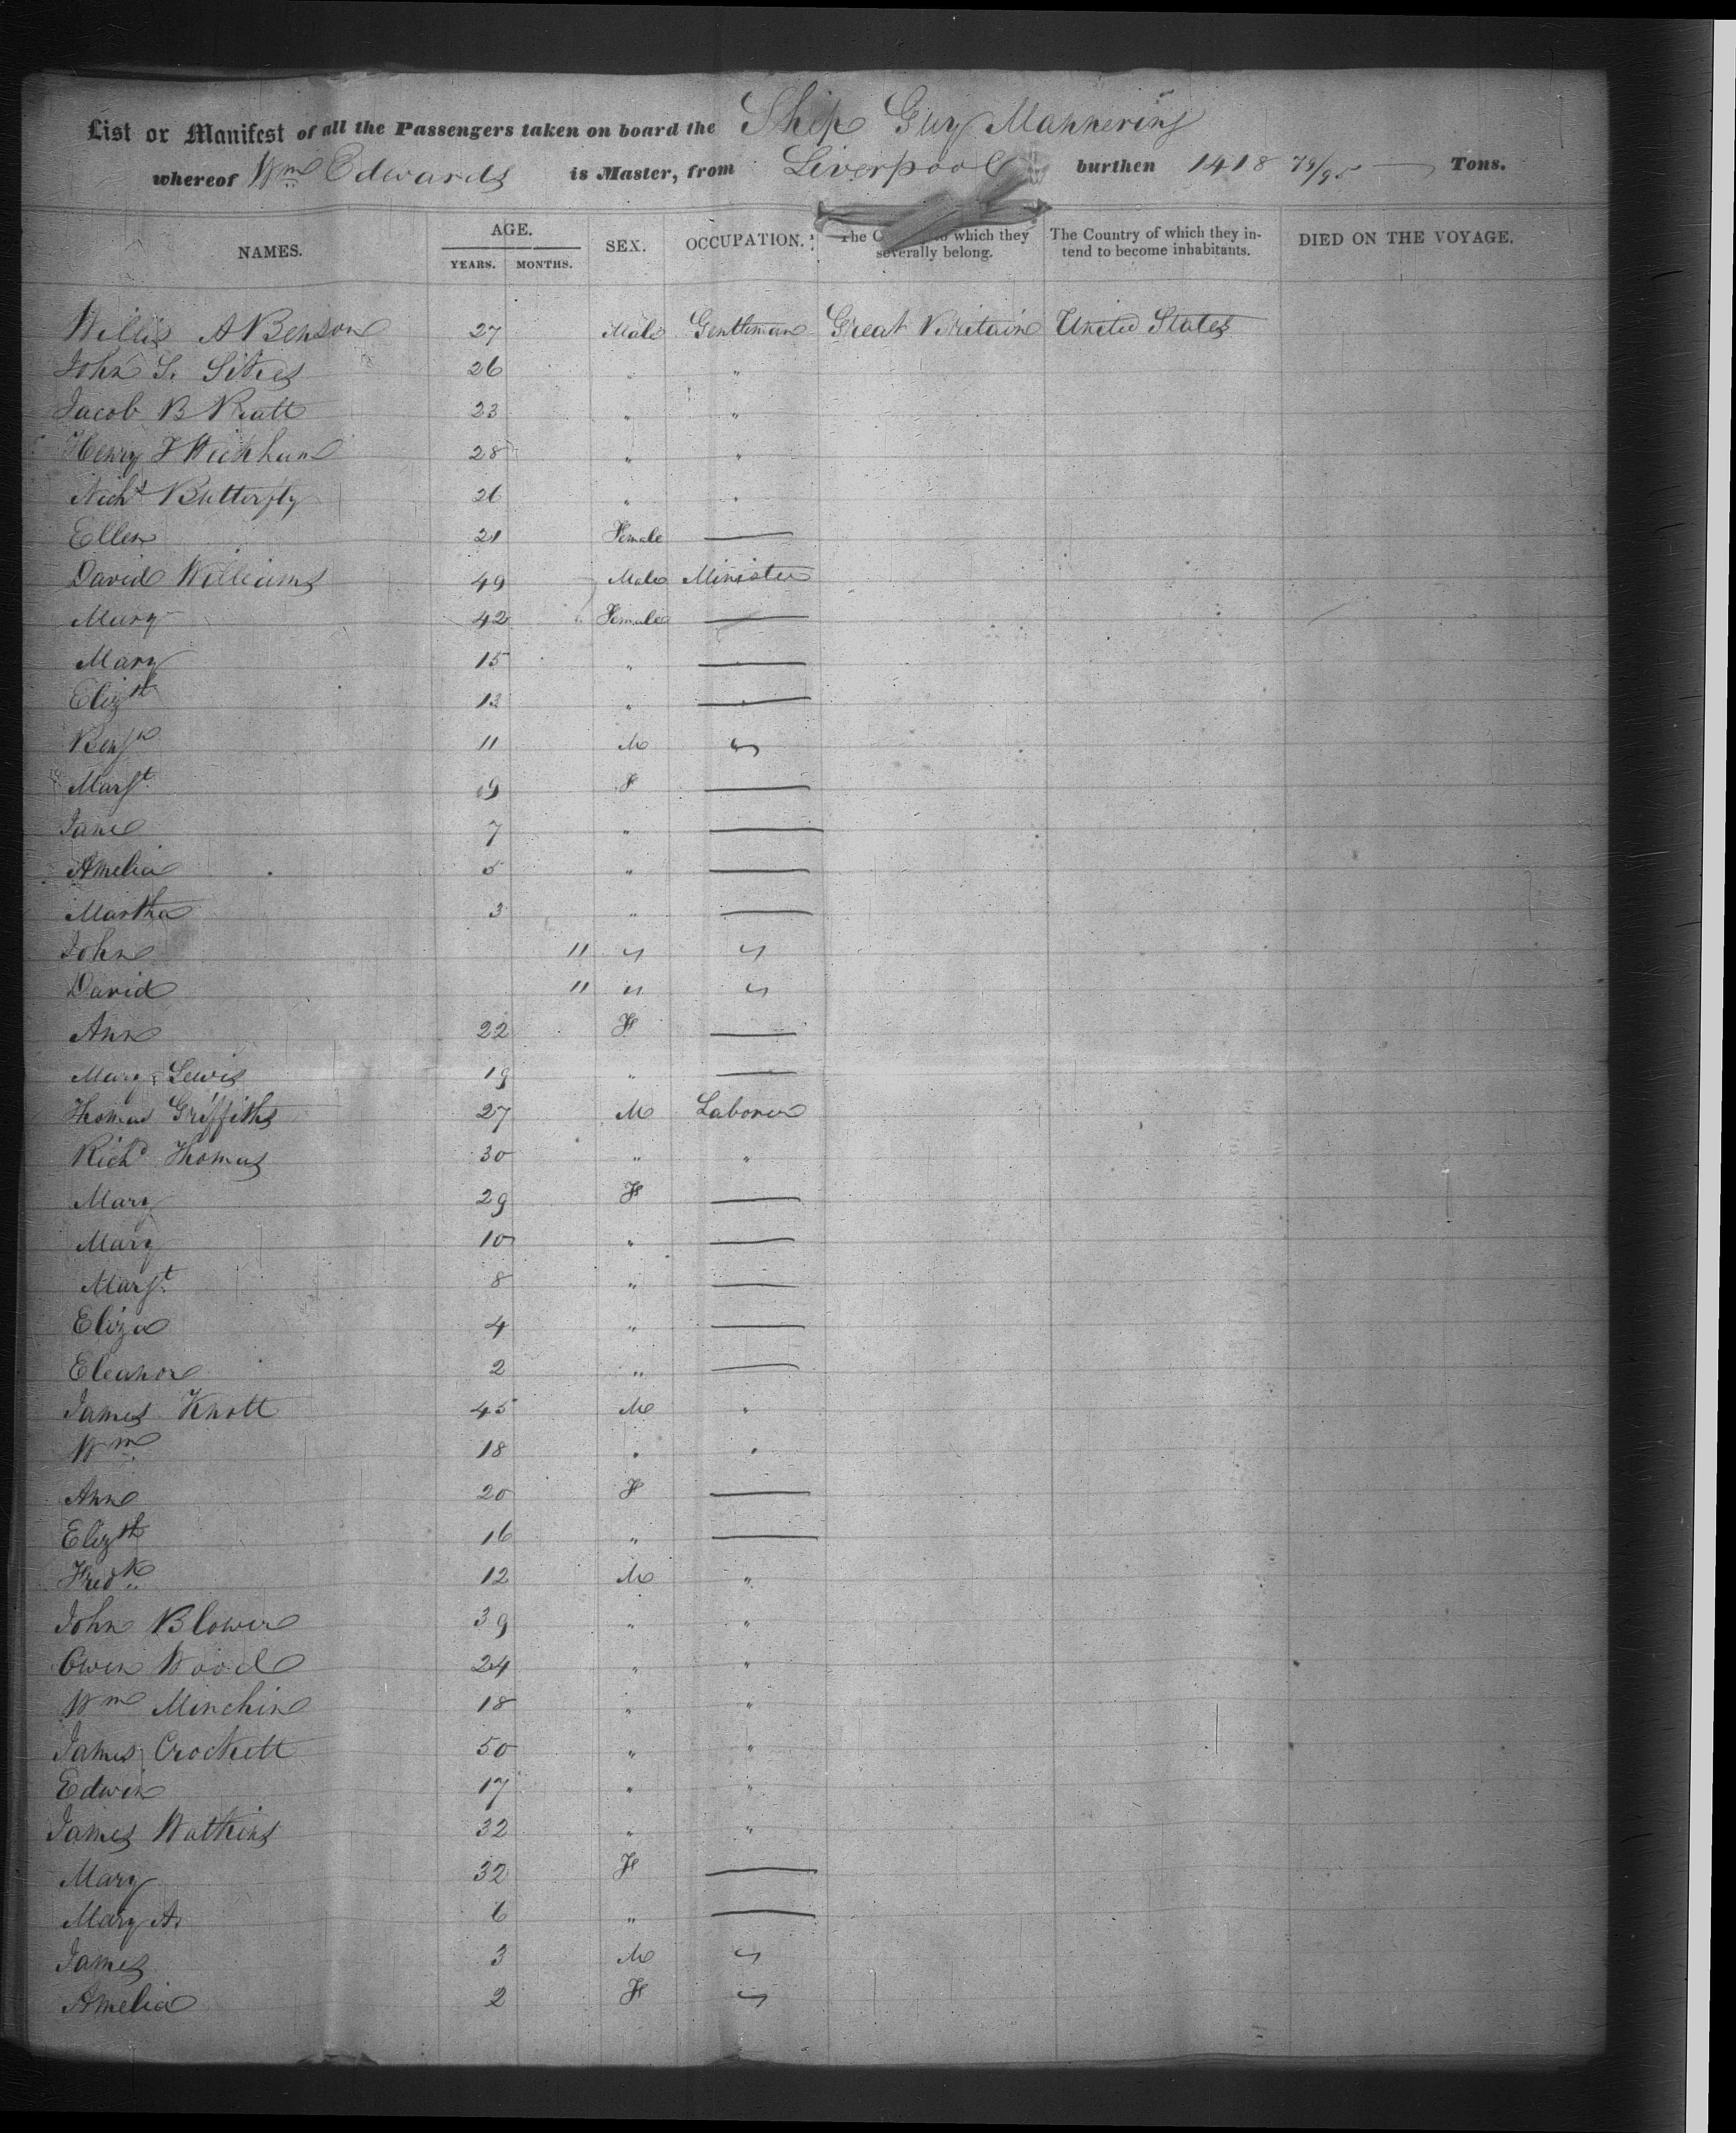 List or Manifest of all the Passengers taken on board the Ship Guy Mannering
whereof Wm Edwards is Master, from Liverpool burthen 1418 79/95 Tons.
NAMES. AGE. YEARS. MONTHS. SEX. OCCUPATION. The C to which they severally belong. The Country of which they intend to become inhabitants. DIED ON THE VOYAGE.
Willis A Benson 27 Male Gentleman Great Britain United States
John S. Sikes 26 " "
Jacob B Pratt 23 " "
Henry J Wickham 28 " "
Richd Butterfly 26 " "
Ellen 21 Female —
David Williams 49 Male Minister
Mary 42 Female —
Mary 15 " —
Elizth 13 " —
Benjn 11 M "
Margt 9 F —
Jane 7 " —
Amelia 5 " —
Martha 3 " —
John 11 " "
David 11 " "
Ann 22 F —
Mary Lewis 19 " —
Thomas Griffiths 27 M Laborer
Richd Thomas 30 " "
Mary 29 F —
Mary 10 " —
Margt 8 " —
Eliza 4 " —
Eleanor 2 " —
James Knott 45 M "
Wm 18 " "
Ann 20 F —
Elizth 16 " —
Fredk 12 M "
John Blower 39 " "
Owen Wood 24 " "
Wm Minchin 18 " "
James Crockett 50 " "
Edwin 17 " "
James Watkins 32 " "
Mary 32 F —
Mary A. 6 " —
James 3 M "
Amelia 2 F "